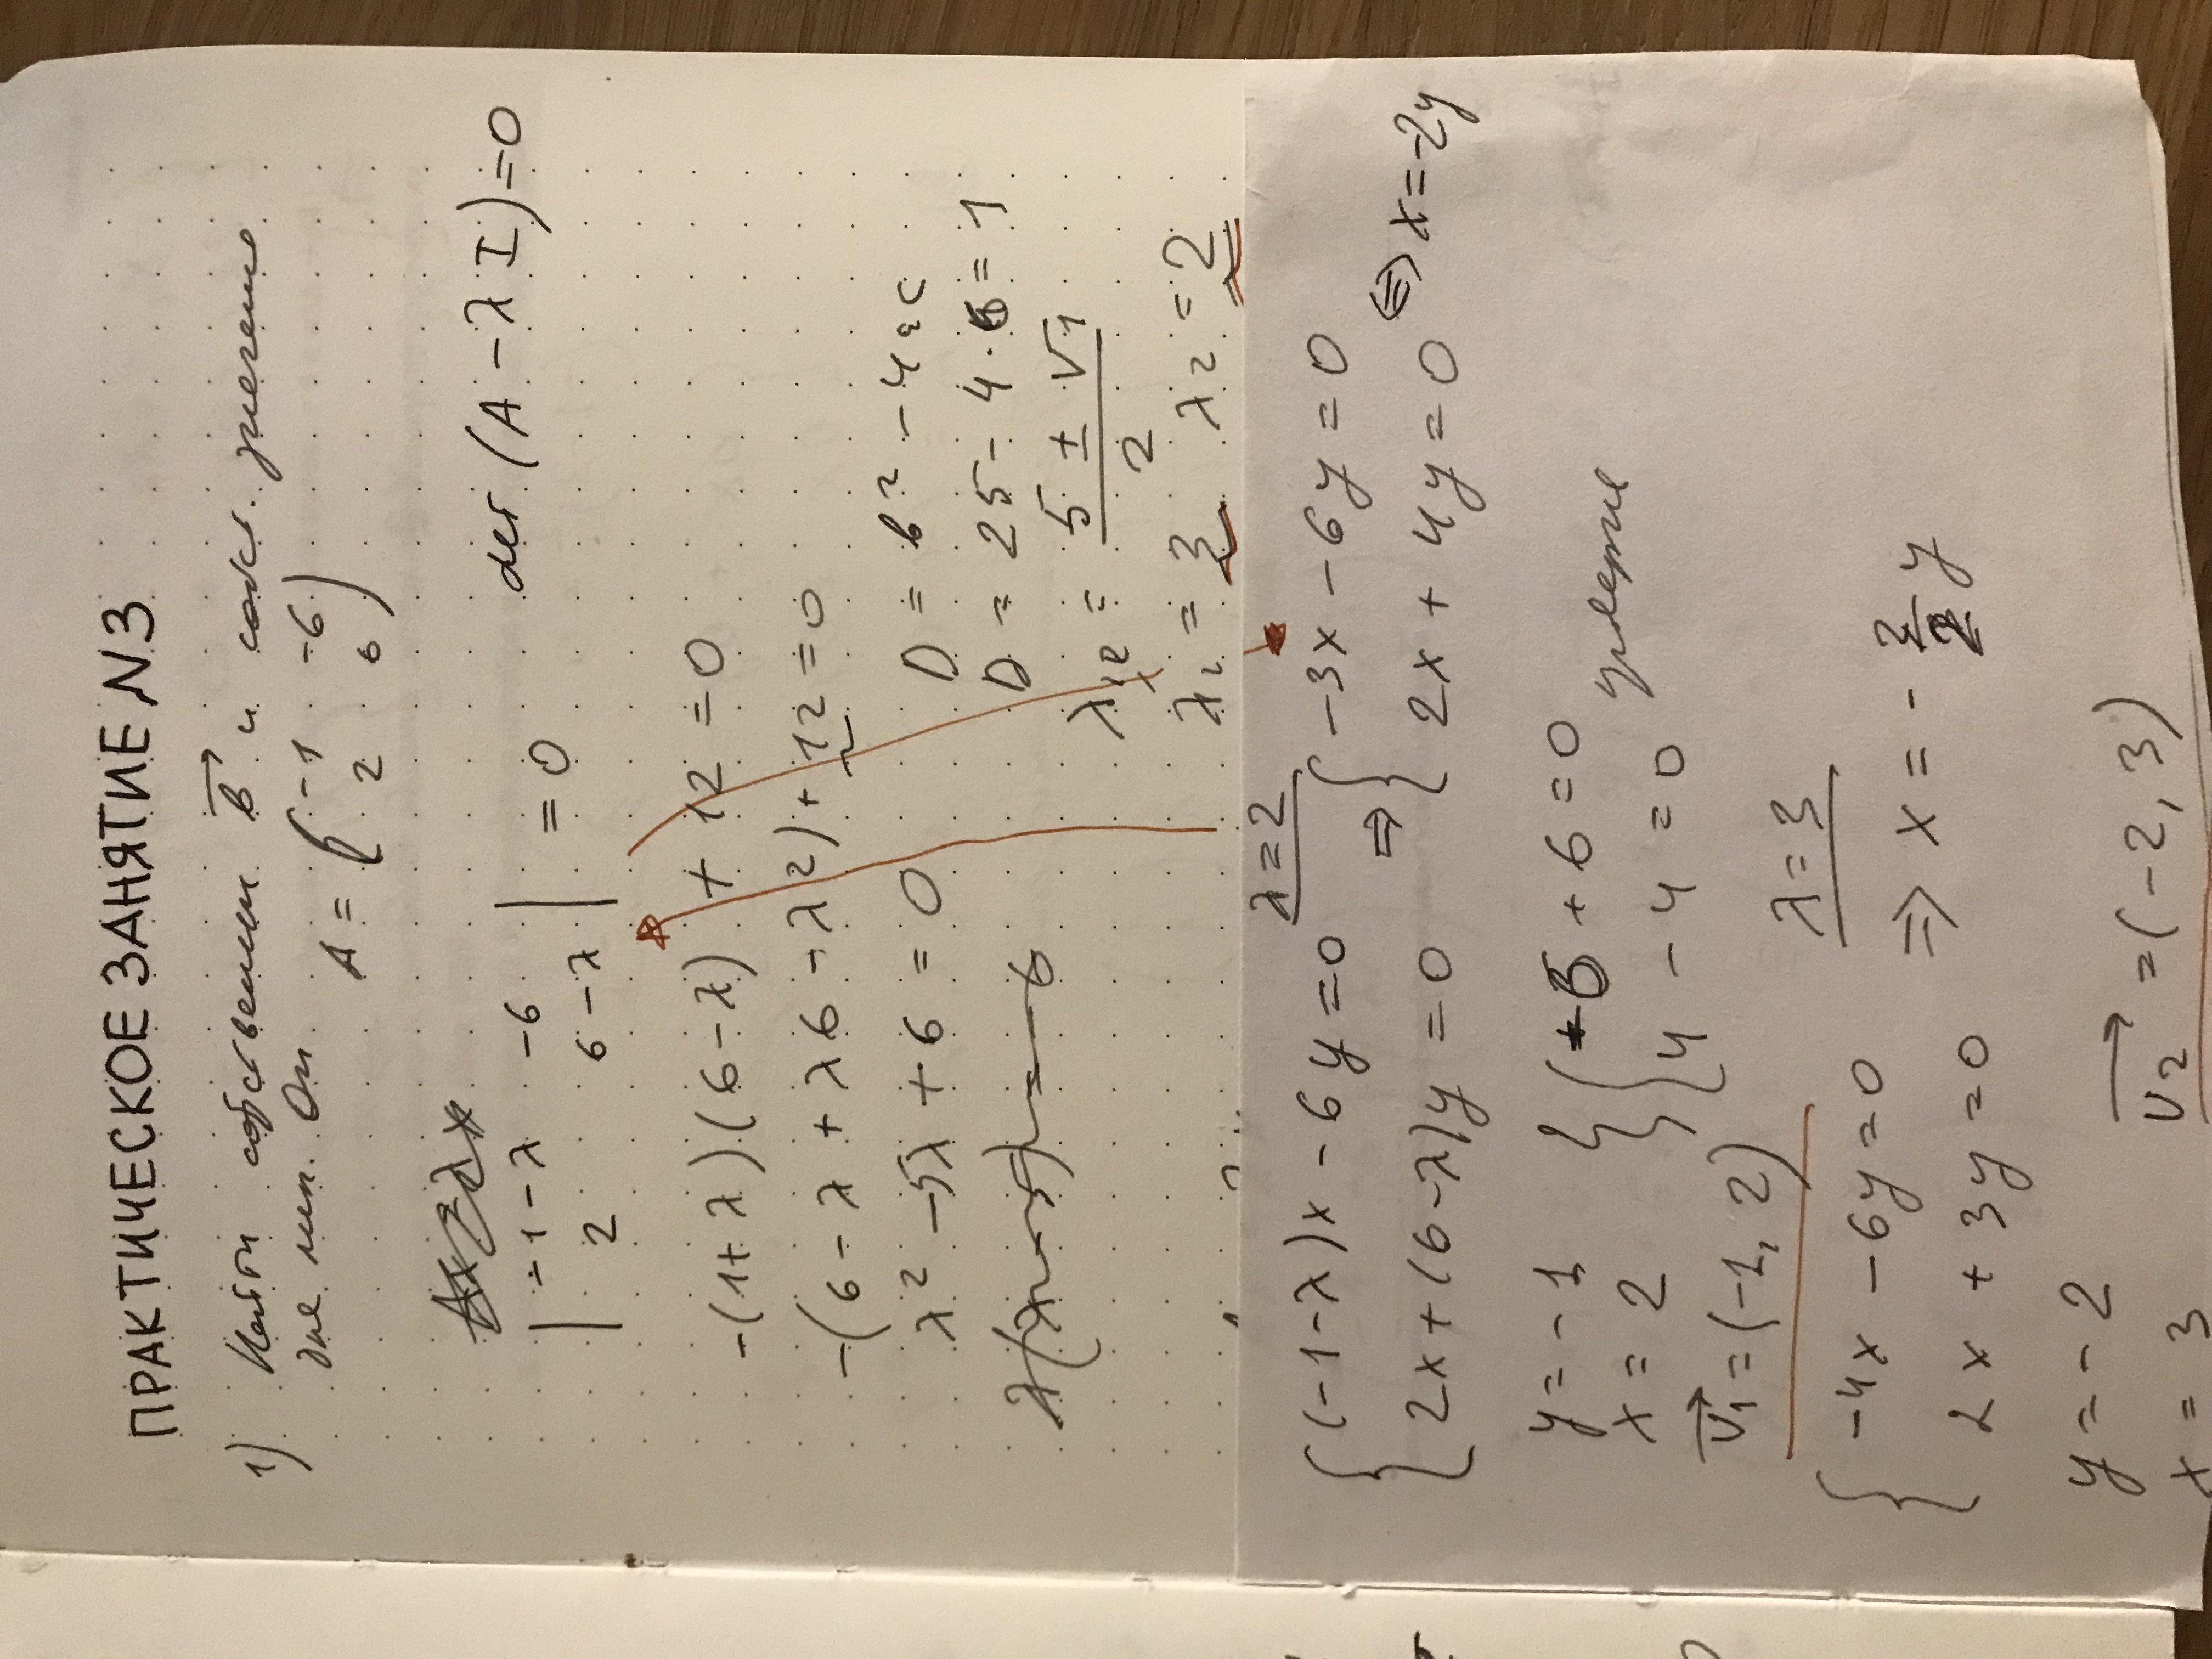 ПРАКТИЧЕСКОЕ ЗАНЯТИЕ N3
1) Найти собственн. b⃗ и собст. значение
для лин. Оп
A = (-1 -6; 2 6)
Ax = λx
|-1-λ -6; 2 6-λ| = 0
det (A - λI) = 0
-(1+λ)(6-λ) + 12 = 0
-(6 - λ + λ6 - λ²) + 12 = 0
λ² - 5λ + 6 = 0
λ(λ-5) = -6
D = b² - 4ac
D = 25 - 4·6 = 1
λ₁₂ = (5 ± √1)/2
λ₁ = 3 λ₂ = 2
λ = 2
{(-1-λ)x - 6y = 0 ⇒ {-3x - 6y = 0
{2x + (6-λ)y = 0 {2x + 4y = 0 ⇔ x = -2y
y = -1
x = 2
-6 + 6 = 0
4 - 4 = 0
V₁⃗ = (-1, 2)
λ = 3
{-4x - 6y = 0
{2x + 3y = 0
⇒ x = -3/2 y
y = -2
x = 3
V₂⃗ = (-2, 3)